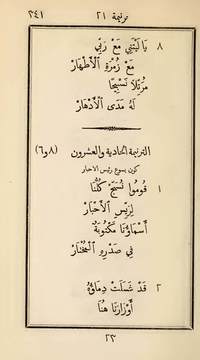 ٣٤١ ترنيمة ٢١
٨ يَا لَيْتَنِي مَعْ رَبِّي
مَعْ زُمْرَةِ ٱلْأَطْهَارْ
مُرَتِّلًا تَسْبِيحًا
لَهُ مَدَى ٱلْأَدْهَارْ
الترنيمة الحادية والعشرون (٨و٦)
كون يسوع رئيس الاحبار
١ قُومُوا نُسَبِّحْ كُلُّنَا
لِرَئِيسِ ٱلْأَحْبَارْ
أَسْمَاؤُنَا مَكْتُوبَةٌ
فِي صَدْرِهِ ٱلْمُخْتَارْ
٢ قَدْ شَمَلَتْ دِمَاؤُهُ
أَوْزَارَنَا هُنَا
٢٣